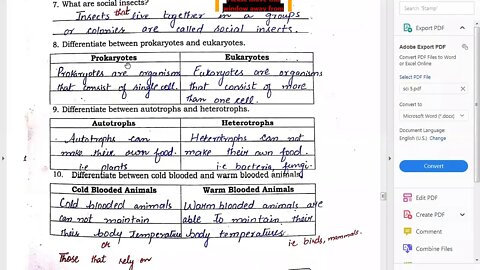 7. What are social insects?
Insects that live together in a groups
or colonies are called social insects.
8. Differentiate between prokaryotes and eukaryotes.
Prokaryotes Eukaryotes
Prokaryotes are organism Eukaryotes are organisms
that consist of single cell. that consist of more
than one cell.
9. Differentiate between autotrophs and heterotrophs.
Autotrophs Heterotrophs
Autotrophs can Heterotrophs can not
make their own food. make their own food.
i.e plants i.e bacteria, fungi.
10. Differentiate between cold blooded and warm blooded animals.
Cold Blooded Animals Warm Blooded Animals
Cold blooded animals Warm blooded animals are
can not maintain able To maintain their
their body Temperature body temperatures.
or i.e birds, mammals.
Those that rely on
Export PDF
Adobe Export PDF
Convert PDF Files to Word
or Excel Online
Select PDF File
sci 5.pdf
Convert to
Microsoft Word (*.docx)
Document Language:
English (U.S.) Change
Convert
Edit PDF
Create PDF
Comment
Combine Files